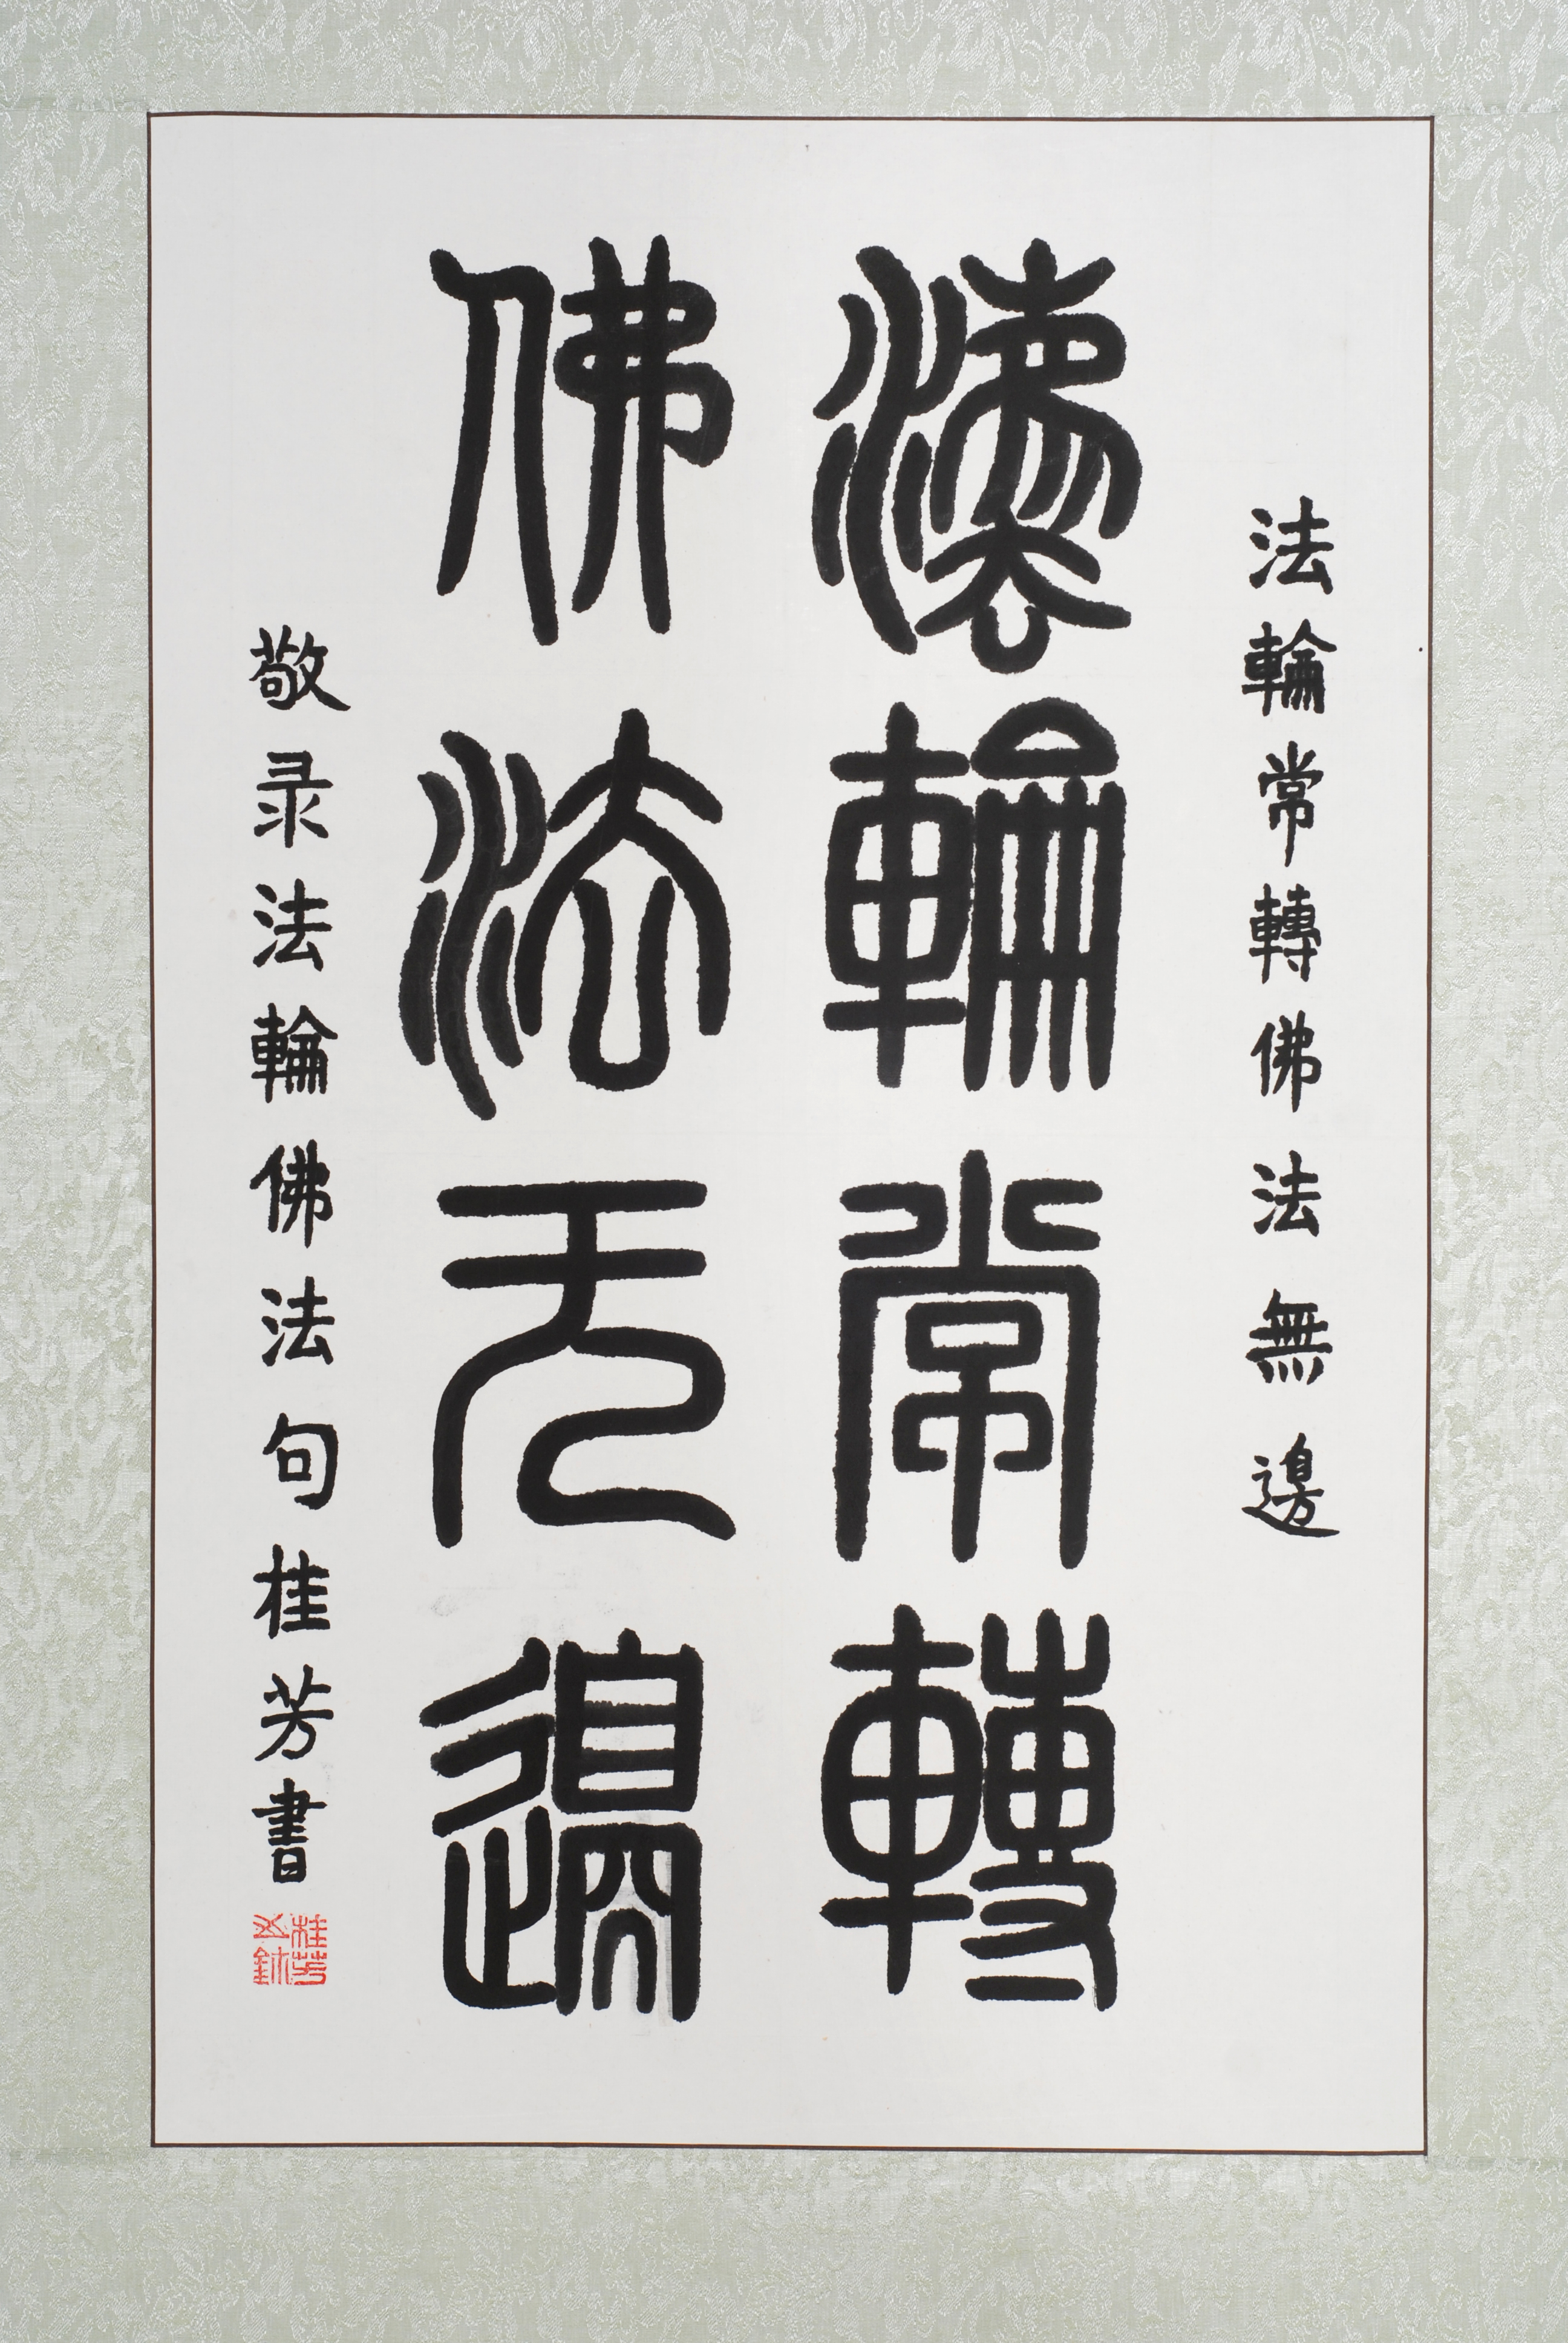 法輪常轉佛法無邊
灋輪常轉
佛法无邊
敬录法輪佛法句桂芳書
桂芳